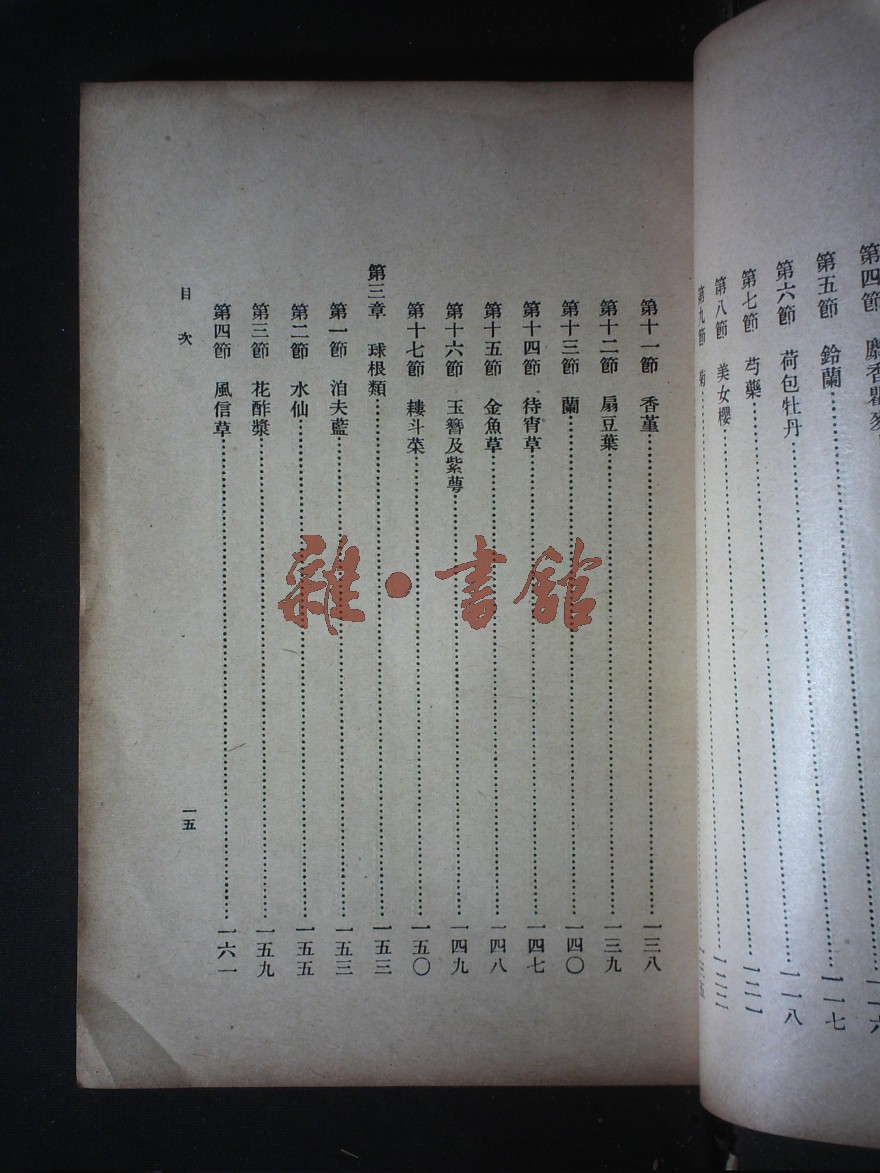 第四節　麝香瞿麥
第五節　鈴蘭……一一七
第六節　荷包牡丹……一一八
第七節　芍藥……一二一
第八節　美女櫻……一二二
第九節　菊
第十一節　香堇……一三八
第十二節　扇豆葉……一三九
第十三節　蘭……一四〇
第十四節　待宵草……一四七
第十五節　金魚草……一四八
第十六節　玉簪及紫萼……一四九
第十七節　耬斗菜……一五〇
第三章　球根類……一五三
第一節　泊夫藍……一五三
第二節　水仙……一五五
第三節　花酢漿……一五九
第四節　風信草……一六一
目次
一五
雜·書館